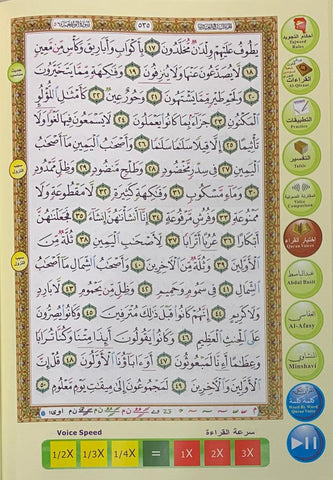 سورة الواقعة ٥٦
٥٣٥
يَطُوفُ عَلَيْهِمْ وِلْدَٰنٌ مُّخَلَّدُونَ ١٧ بِأَكْوَابٍ وَأَبَارِيقَ وَكَأْسٍ مِّن مَّعِينٍ
١٨ لَّا يُصَدَّعُونَ عَنْهَا وَلَا يُنزِفُونَ ١٩ وَفَٰكِهَةٍ مِّمَّا يَتَخَيَّرُونَ
٢٠ وَلَحْمِ طَيْرٍ مِّمَّا يَشْتَهُونَ ٢١ وَحُورٌ عِينٌ ٢٢ كَأَمْثَٰلِ ٱللُّؤْلُؤِ
ٱلْمَكْنُونِ ٢٣ جَزَآءًۢ بِمَا كَانُوا۟ يَعْمَلُونَ ٢٤ لَا يَسْمَعُونَ فِيهَا لَغْوًا وَلَا
تَأْثِيمًا ٢٥ إِلَّا قِيلًا سَلَٰمًا سَلَٰمًا ٢٦ وَأَصْحَٰبُ ٱلْيَمِينِ مَآ أَصْحَٰبُ
ٱلْيَمِينِ ٢٧ فِى سِدْرٍ مَّخْضُودٍ ٢٨ وَطَلْحٍ مَّنضُودٍ ٢٩ وَظِلٍّ مَّمْدُودٍ
٣٠ وَمَآءٍ مَّسْكُوبٍ ٣١ وَفَٰكِهَةٍ كَثِيرَةٍ ٣٢ لَّا مَقْطُوعَةٍ وَلَا
مَمْنُوعَةٍ ٣٣ وَفُرُشٍ مَّرْفُوعَةٍ ٣٤ إِنَّآ أَنشَأْنَٰهُنَّ إِنشَآءً ٣٥ فَجَعَلْنَٰهُنَّ
أَبْكَارًا ٣٦ عُرُبًا أَتْرَابًا ٣٧ لِّأَصْحَٰبِ ٱلْيَمِينِ ٣٨ ثُلَّةٌ مِّنَ
ٱلْأَوَّلِينَ ٣٩ وَثُلَّةٌ مِّنَ ٱلْءَاخِرِينَ ٤٠ وَأَصْحَٰبُ ٱلشِّمَالِ مَآ أَصْحَٰبُ
ٱلشِّمَالِ ٤١ فِى سَمُومٍ وَحَمِيمٍ ٤٢ وَظِلٍّ مِّن يَحْمُومٍ ٤٣ لَّا بَارِدٍ
وَلَا كَرِيمٍ ٤٤ إِنَّهُمْ كَانُوا۟ قَبْلَ ذَٰلِكَ مُتْرَفِينَ ٤٥ وَكَانُوا۟ يُصِرُّونَ
عَلَى ٱلْحِنثِ ٱلْعَظِيمِ ٤٦ وَكَانُوا۟ يَقُولُونَ أَئِذَا مِتْنَا وَكُنَّا تُرَابًا
وَعِظَٰمًا أَءِنَّا لَمَبْعُوثُونَ ٤٧ أَوَءَابَآؤُنَا ٱلْأَوَّلُونَ ٤٨ قُلْ إِنَّ
ٱلْأَوَّلِينَ وَٱلْءَاخِرِينَ ٤٩ لَمَجْمُوعُونَ إِلَىٰ مِيقَٰتِ يَوْمٍ مَّعْلُومٍ ٥٠
أحكام التجويد
Tajweed Rules
القراءات
Al-Qiraat
التطبيقات
Practice
التفسير
Tafsir
مقارنة الصوتية
Voice Comparison
اختيار القراء
Quran Voices
عبدالباسط
Abdul Basit
العفاسي
Al-Afasy
المنشاوي
Minshavi
كلمة كلمة
Word By Word Quran Voice
Voice Speed
سرعة القراءة
1/2X 1/3X 1/4X = 1X 2X 3X